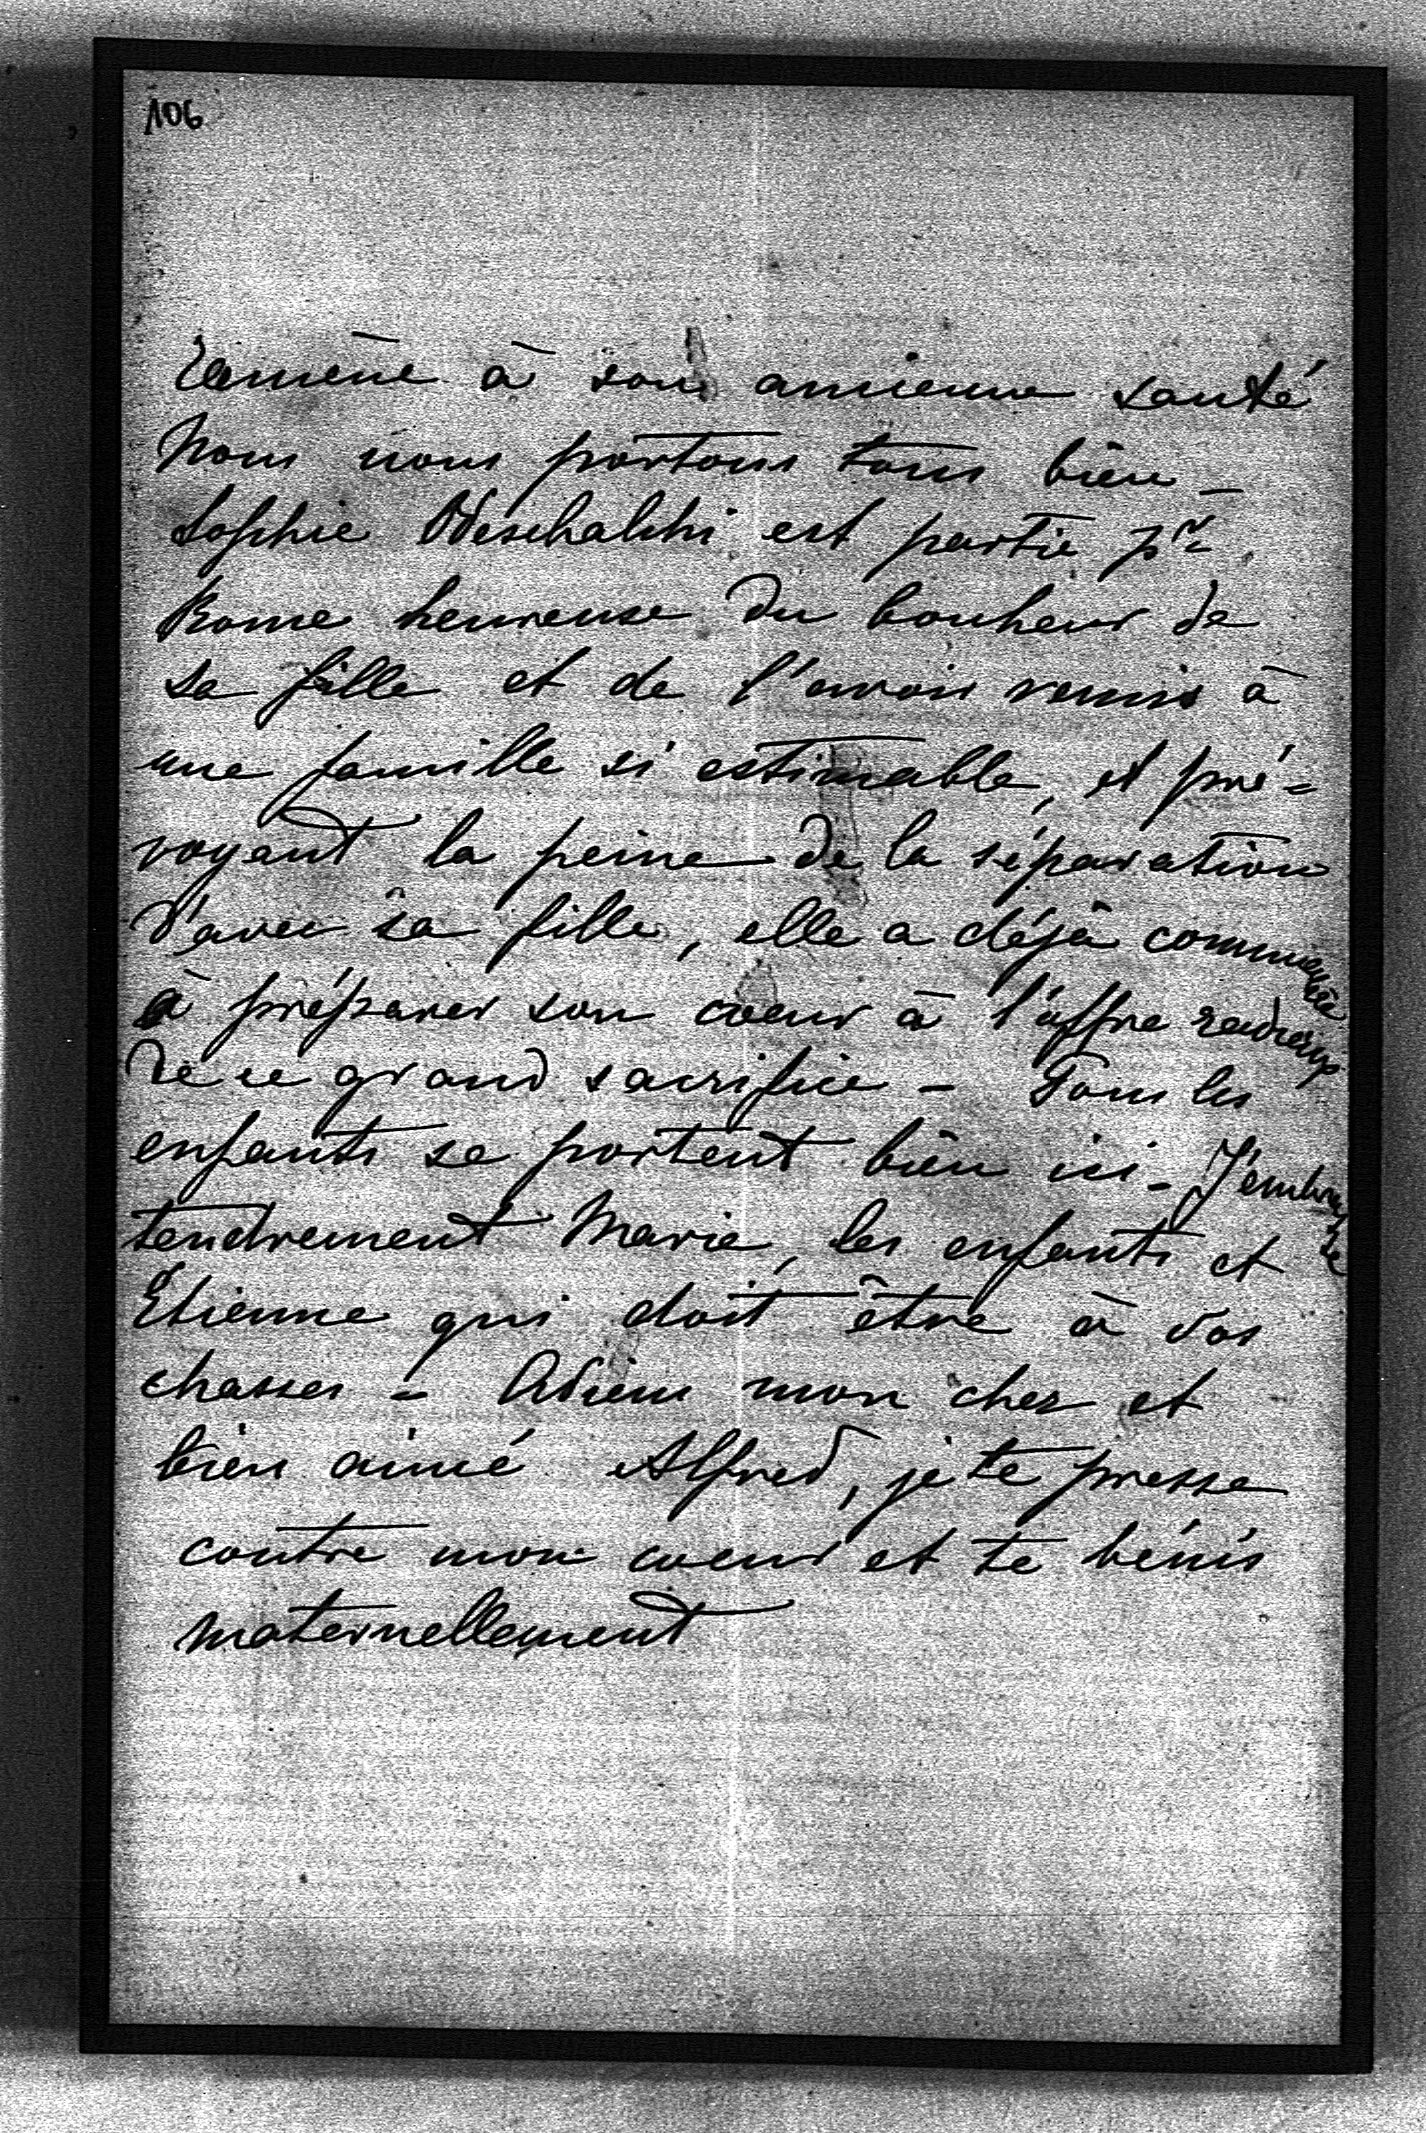 106
ramène à son ancienne santé
Nous nous portons tous bien –
Sophie Odeschalchi est partie pr
Rome heureuse du bonheur de
sa fille et de l'avoir remis à
une famille si estimable, et pré=
voyant la peine de la séparation
d'avec sa fille, elle a déjà commencé
à préparer son coeur à l'offre
de ce grand sacrifice – Tous les
enfants se portent bien ici – J'embrasse
tendrement Marie, les enfants et
Etienne qui doit être à vos
chasses – Adieu mon cher et
bien aimé Alfred, je te presse
contre mon coeur et te bénis
maternellement